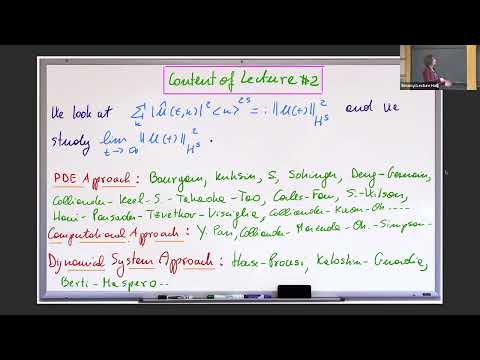 Content of Lecture #2
Simonyi Lecture Hall
We look at ∑_k |û(t,k)|² <k>^{2s} =: ‖u(t)‖²_{H^s} and we
study lim_{t→∞} ‖u(t)‖²_{H^s} .
PDE Approach : Bourgain, Kuksin, S, Sohinger, Deng-Germain,
Colliander-Keel-S.-Takaoka-Tao, Carles-Faou, S.-Wilson,
Hani-Pausader-Tzvetkov-Visciglia, Colliander-Kwon-Oh ....
Computational Approach : Y. Pan, Colliander-Marzuola-Oh.-Simpson--
Dynamical System Approach : Haus-Procesi, Kaloshin-Guardia,
Berti-Maspero--